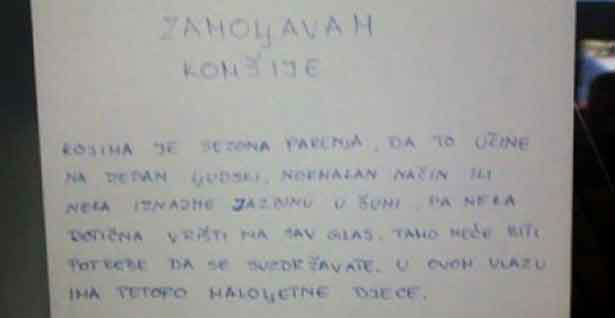 ZAMOLJAVAM
KOMŠIJE
KOJIMA JE SEZONA PARENJA, DA TO UČINE
NA JEDAN LJUDSKI, NORMALAN NAČIN ILI
NEKA IZNAJME JAZBINU U ŠUMI, PA NEKA
DOTIČNA VRIŠTI NA SAV GLAS. TAMO NEĆE BITI
POTREBE DA SE SUZDRŽAVATE. U OVOM ULAZU
IMA PETORO MALOLJETNE DJECE.